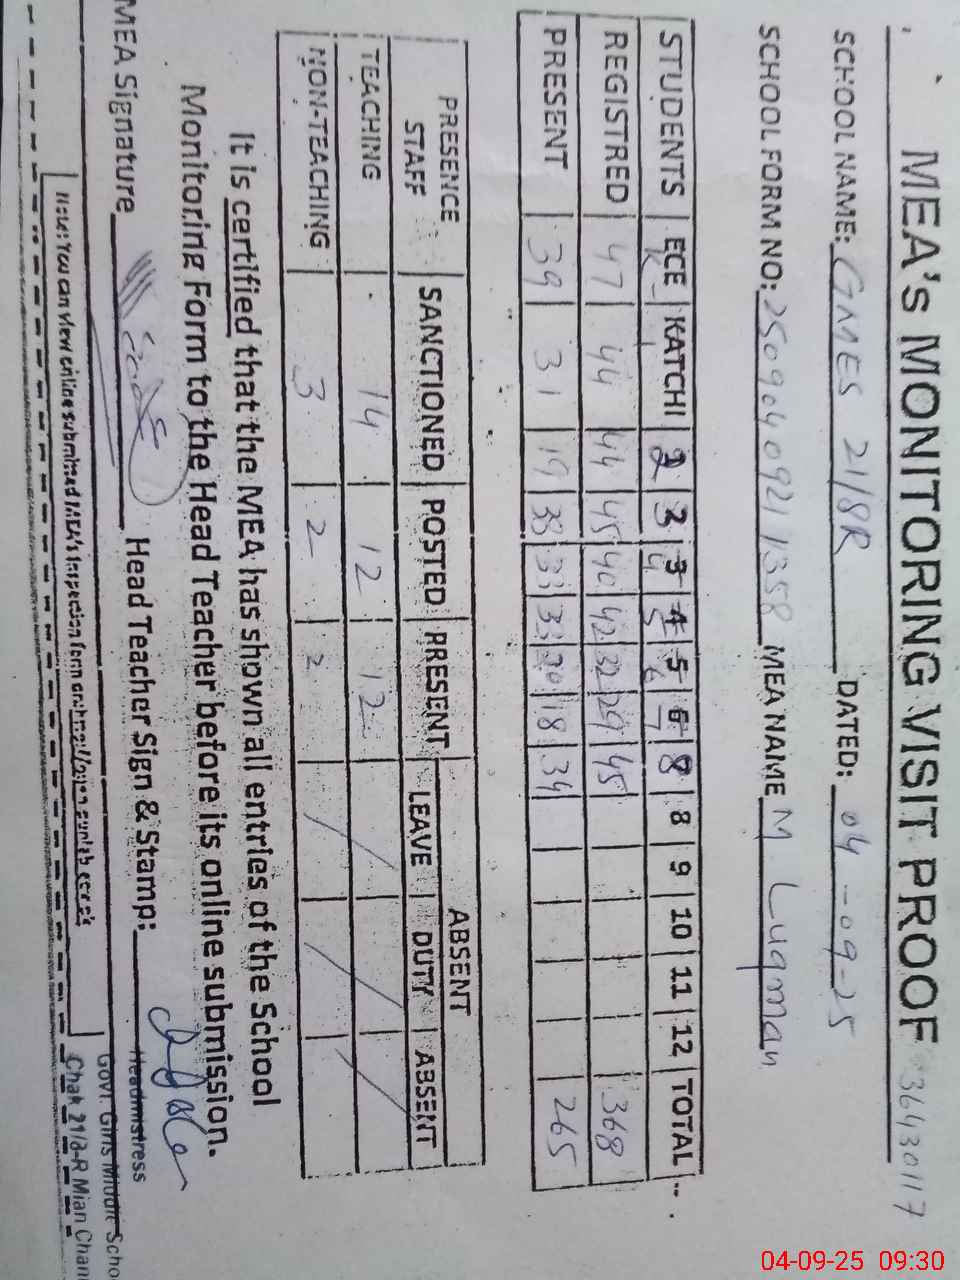 MEA's MONITORING VISIT PROOF 36430117
SCHOOL NAME: GMES 21/8R DATED: 04-09-25
SCHOOL FORM NO: 25090409211358 MEA NAME M Luqman
STUDENTS ECE K KATCHI 1 2 3 4 5 6 7 8 8 9 10 11 12 TOTAL
REGISTRED 47 44 44 45 40 42 32 29 45 368
PRESENT 39 31 19 33 33 33 20 18 34 265
PRESENCE STAFF SANCTIONED POSTED PRESENT ABSENT
LEAVE DUTY ABSENT
TEACHING 14 12 12 / / /
NON-TEACHING 3 2 2 / /
It is certified that the MEA has shown all entries of the School
Monitoring Form to the Head Teacher before its online submission.
MEA Signature Head Teacher Sign & Stamp:
Headmistress
Govt. Girls Middle Scho
Chak 21/8-R Mian Chan
Note: You can view online submitted MEA's Inspection form on
04-09-25 09:30